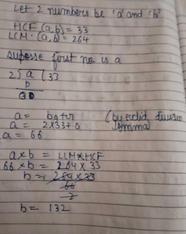 Let 2 numbers be 'a' and 'b'
HCF (a, b) = 33
LCM (a, b) = 264
suppose first no. is a
2) a (33
b
a = bq + r (by euclid division
a = 2×33+0 lemma)
a = 66
a × b = LCM × HCF
66 × b = 264 × 33
b = 264 × 33
66
b = 132